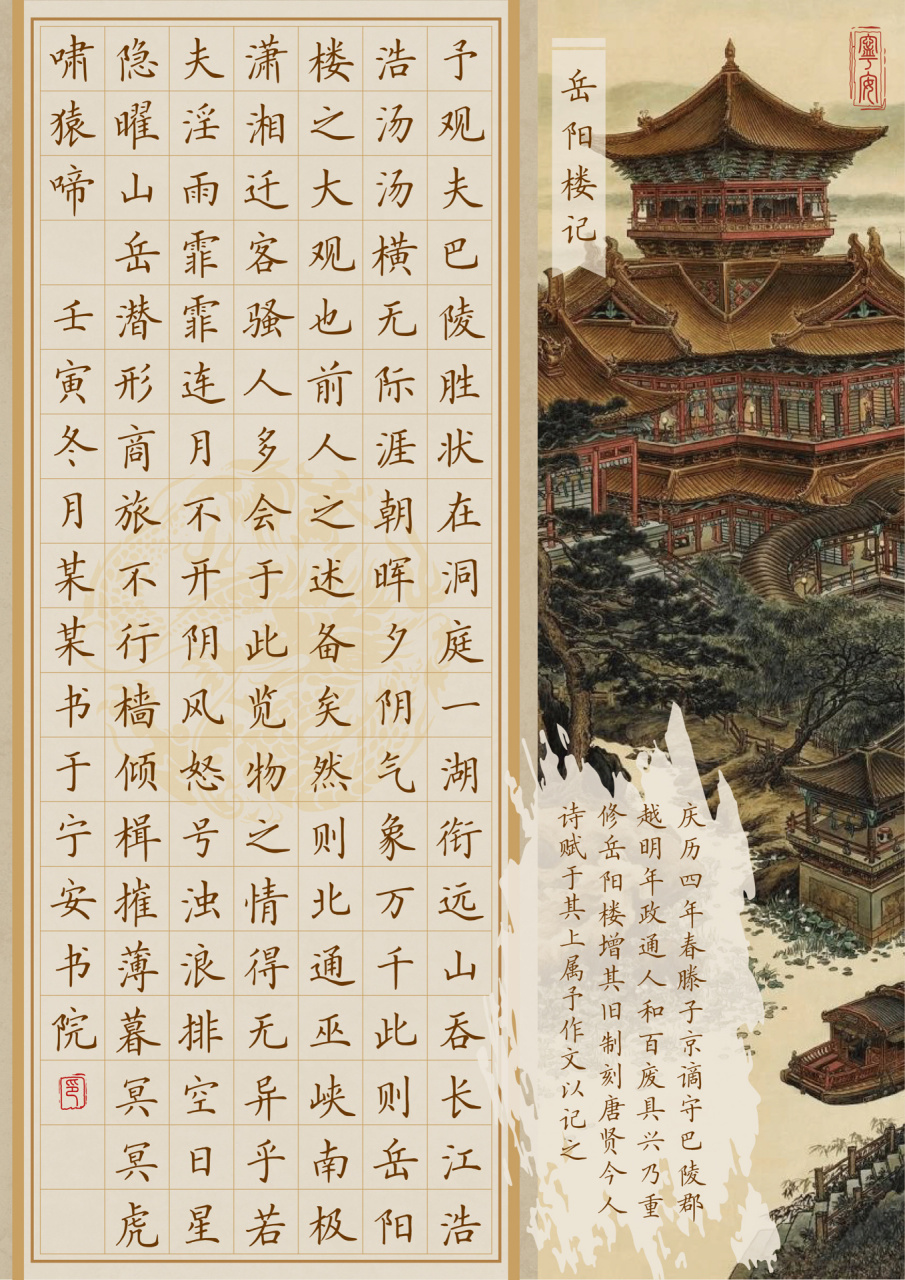 寧安
岳阳楼记
庆历四年春滕子京谪守巴陵郡
越明年政通人和百废具兴乃重
修岳阳楼增其旧制刻唐贤今人
诗赋于其上属予作文以记之
予观夫巴陵胜状在洞庭一湖衔远山吞长江浩
浩汤汤横无际涯朝晖夕阴气象万千此则岳阳
楼之大观也前人之述备矣然则北通巫峡南极
潇湘迁客骚人多会于此览物之情得无异乎若
夫淫雨霏霏连月不开阴风怒号浊浪排空日星
隐曜山岳潜形商旅不行樯倾楫摧薄暮冥冥虎
啸猿啼 壬寅冬月某某书于宁安书院
印